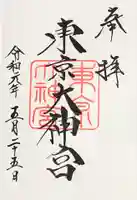 奉拝
東京大神宮
東京大神宮
令和元年五月二十五日